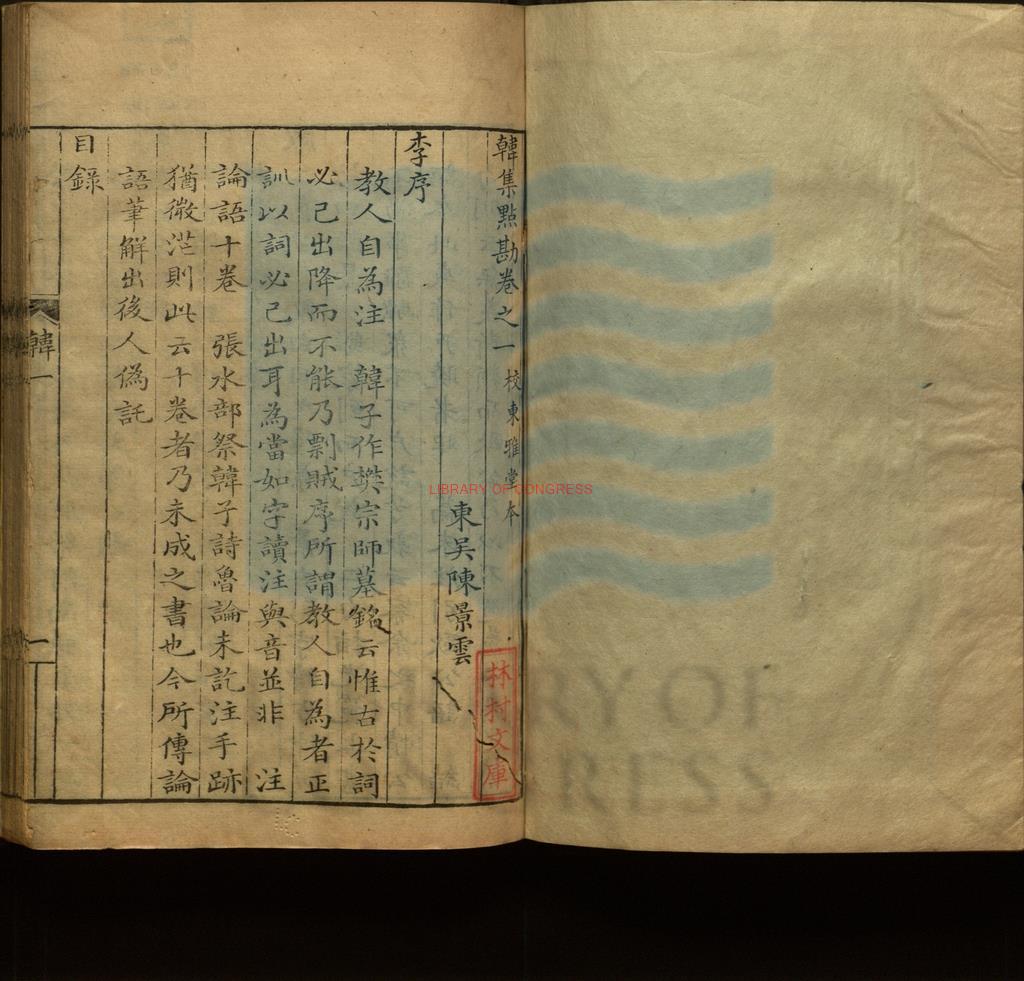 韓集點勘卷之一 校東雅堂本
東吳陳景雲
李序
教人自為注 韓子作樊宗師墓銘云惟古於詞
必己出降而不能乃剽賊序所謂教人自為者正
訓以詞必己出耳為當如字讀注與音並非 注
論語十卷 張水部祭韓子詩魯論未訖注手跡
猶微茫則此云十卷者乃未成之書也今所傳論
語筆解出後人偽託
目錄
韓一
一
林村文庫
LIBRARY OF CONGRESS
RY OF
RESS